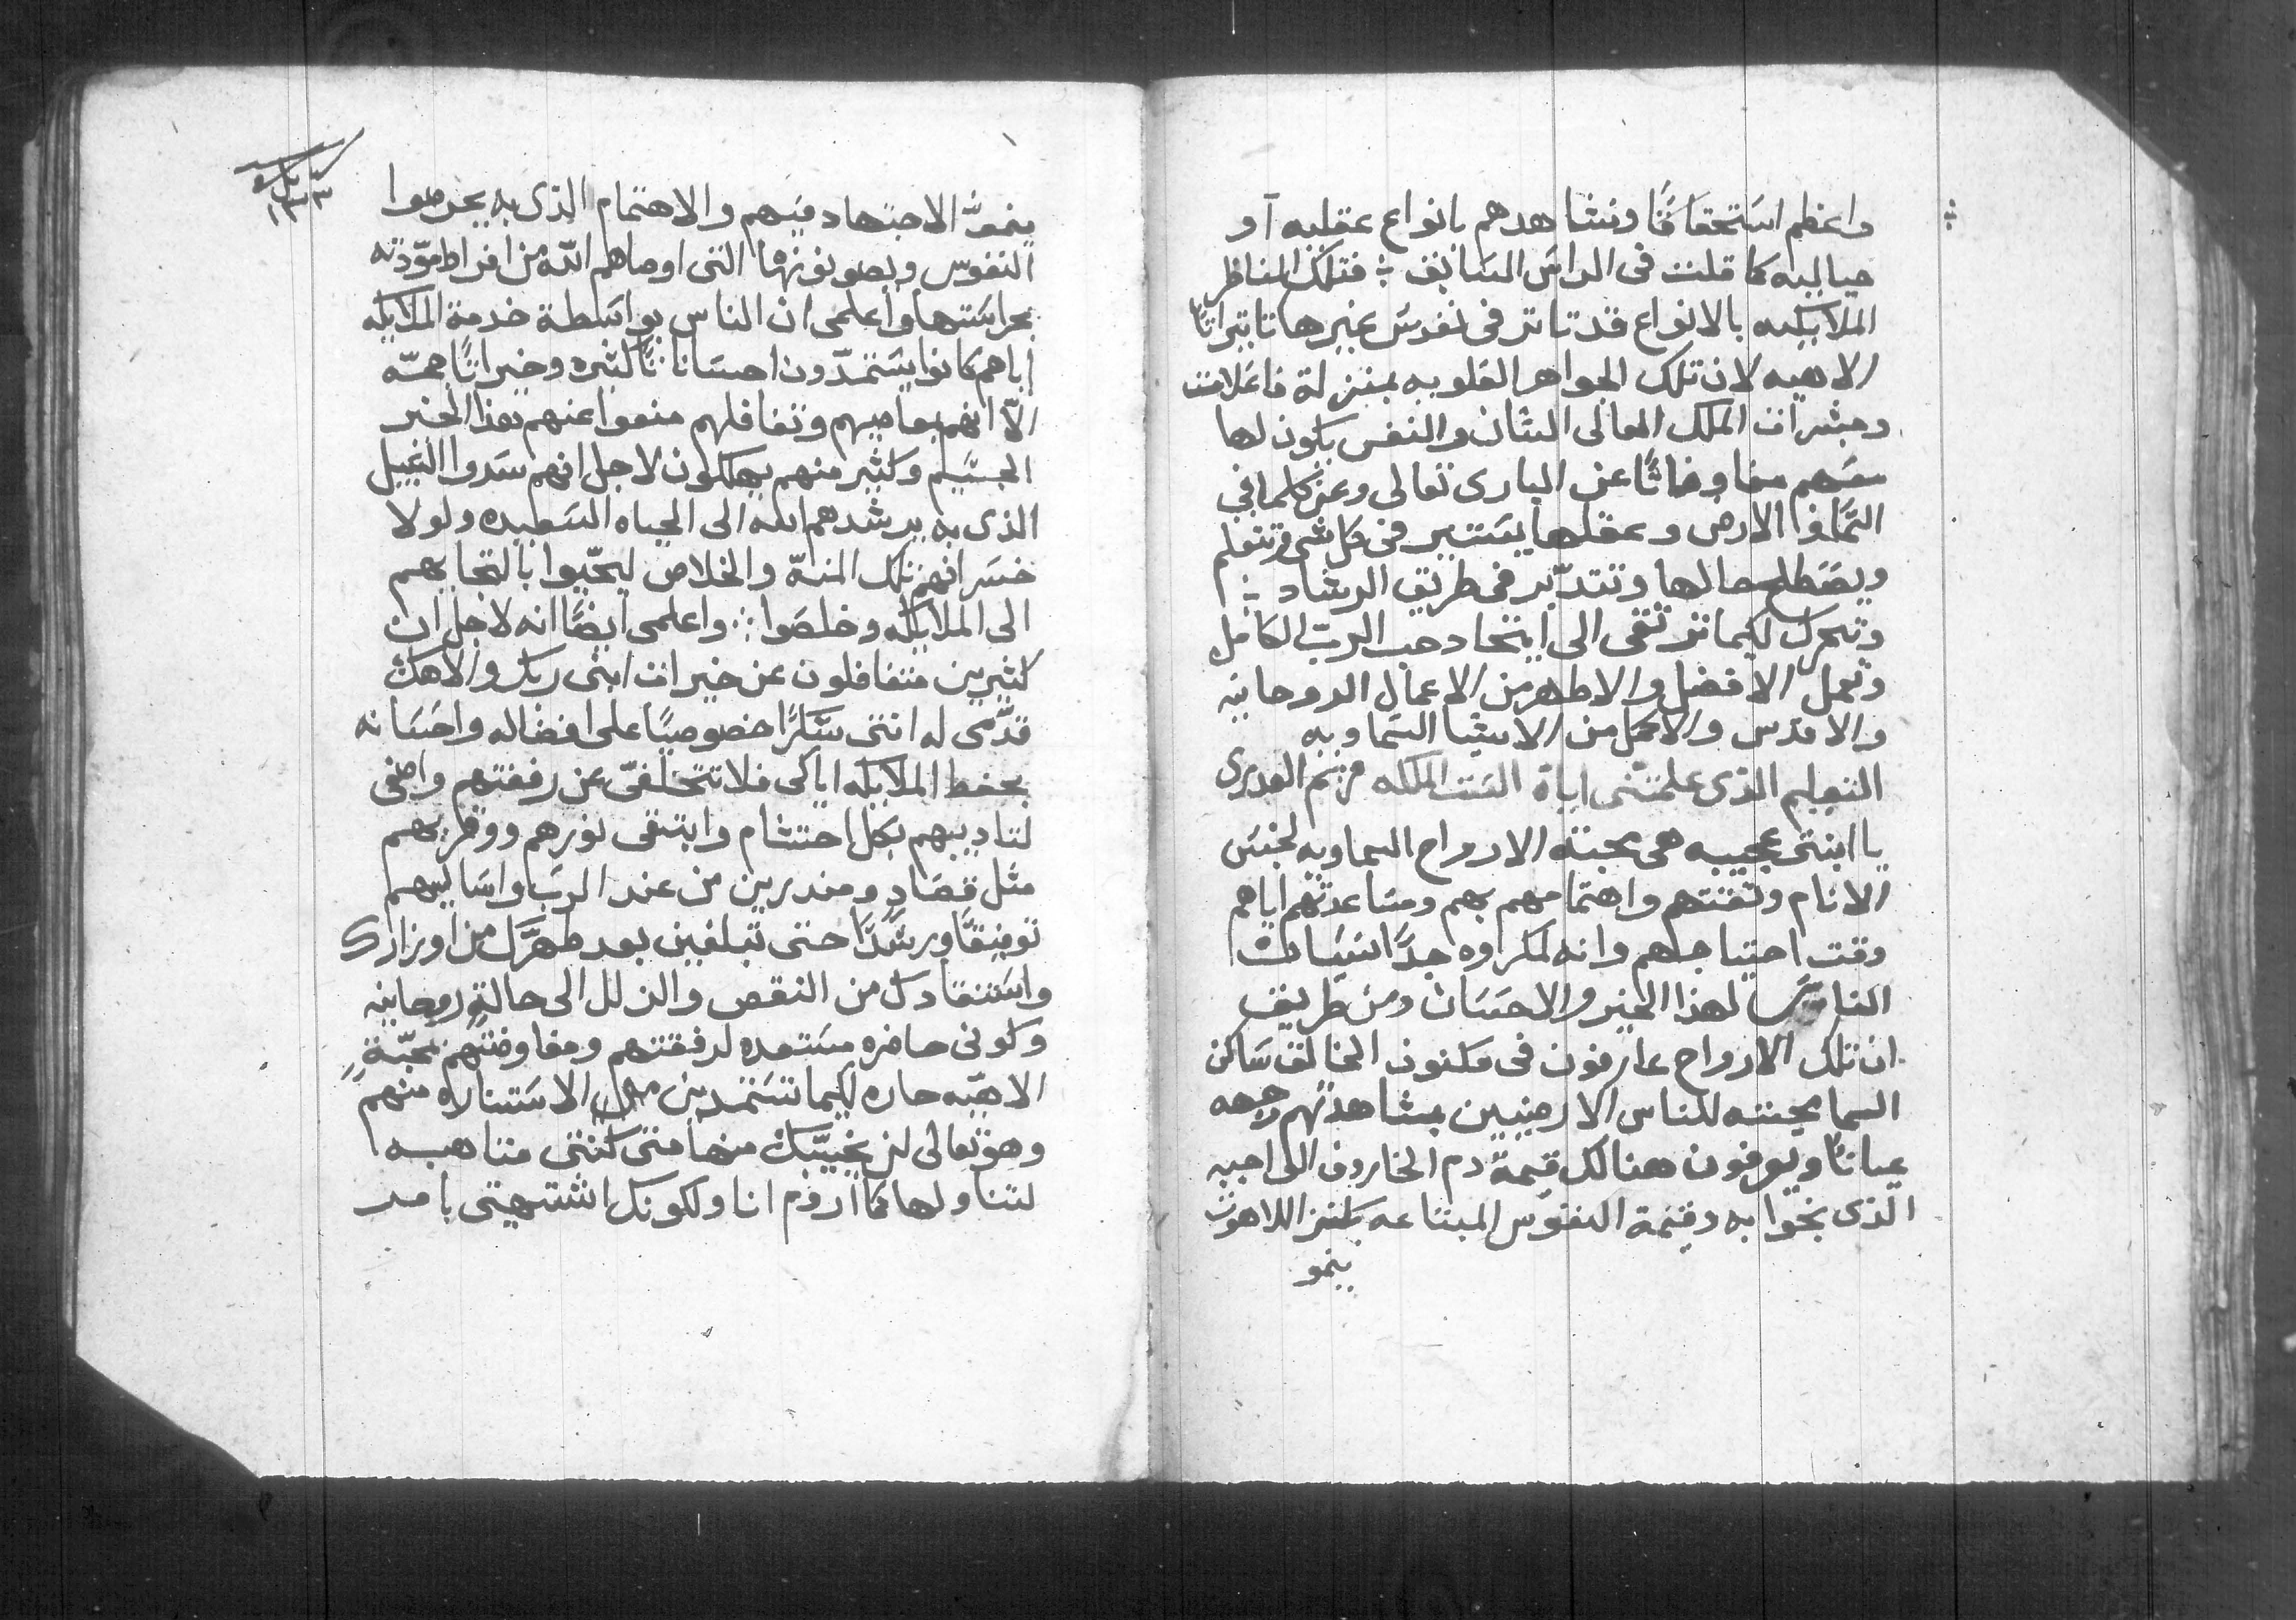 واعظم استحقاقًا ونشاهدهم بانواع عقليه او
خياليه كما قلت فى الراس السابق فتلك المناظر
الملايكيه بالانواع قد تاثر فى نفوس غيرها تاثيراتًا
الاهيه لان تلك الجواهر العلويه بمنزلة فاعلات
ومبشرات الملك العالى الشان والنفس يكون لها
معهم مفاوضاتًا عن البارى تعالى وعن كلما فى
السما والارض وعقلها يستنير فى كل شى وتتعلم
ويصطلح حالها وتتدبر فى طريق الرشاد
وتتحرك لكيما ترتقى الى اتحاد حب الرب الكامل
وتعمل الافضل والاطهر من الاعمال الروحانيه
والاقدس والاكمل من الاشيا السماويه
التعليم الذى علمتنى اياه الست الملكه مريم العدرى
يا ابنتى عجيبه هى محبة الارواح السماويه لجنس
الانام وثقتهم واهتمامهم بهم ومساعدتهم اياهم
وقت احتياجهم وانه لمكروه جدًا نسيان
الناس لهذا الخير والاحسان ومن طريق
ان تلك الارواح عارفون فى مكنون الخالق ساكن
السما محبته للناس الارضيين بمشاهدتهم وجهه
عيانًا ويعرفون هنالك قيمة دم الخاروف الى احبيه
الذى نجوا به وقيمة النفوس المبتاعه بكنز اللاهوت
ينمو
كراس
١٣٣
ينمو الاجتهاد فيهم والاهتمام الذى به يحرصوا
النفوس ويصونونها التى اوصاهم الله من افراط مودته
بحراستها واعلمى ان الناس بواسطة خدمة الملايكه
اياهم كانوا يستمدون احساناتًا كثيره وخيراتًا جمّه
الّا انهم بمعاصيهم وتغافلهم منعوا عنهم هذا الخير
الجسيم وكثير منهم يهلكون لاجل انهم سدوا السبيل
الذى به يرشدهم الله الى الحياه السعيده ولولا
خسرانهم تلك المنّه والخلاص لنجّيوا بالتجايهم
الى الملايكه وخلصوا واعلمى ايضًا انه لاجل ان
كثيرين متغافلون عن خيرات ابنى ربك والاهك
قدّمى له انتى شكرًا خصوصيًا على افضاله واحسانه
بحفظ الملايكه اياكى فلا تتخلفى عن رفقتهم واصغى
لتاديبهم بكل احتشام وابتغى نورهم ووقريهم
مثل قصاد ومندرين من عند الرب واساليهم
توفيقًا ورشدًا حتى تبلغين بعد طهرك من اوزارك
واستنقادك من النقص والزلل الى حالةٍ روحانيه
وكونى حاضره مستعده لرفقتهم ومفاوضتهم بمحبّةٍ
الاهيّه حاره لكيما تستمدين الاستناره منهم
وهو تعالى لن يخيّبك منها متى كنتى متاهبه
لتناولها كما اروم انا ولكونك اشتهيتى بامر